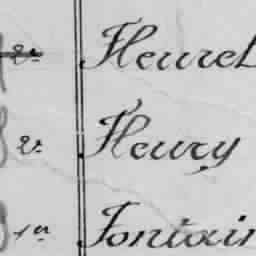 2e Fleuret
2e Fleury
1er Fontain